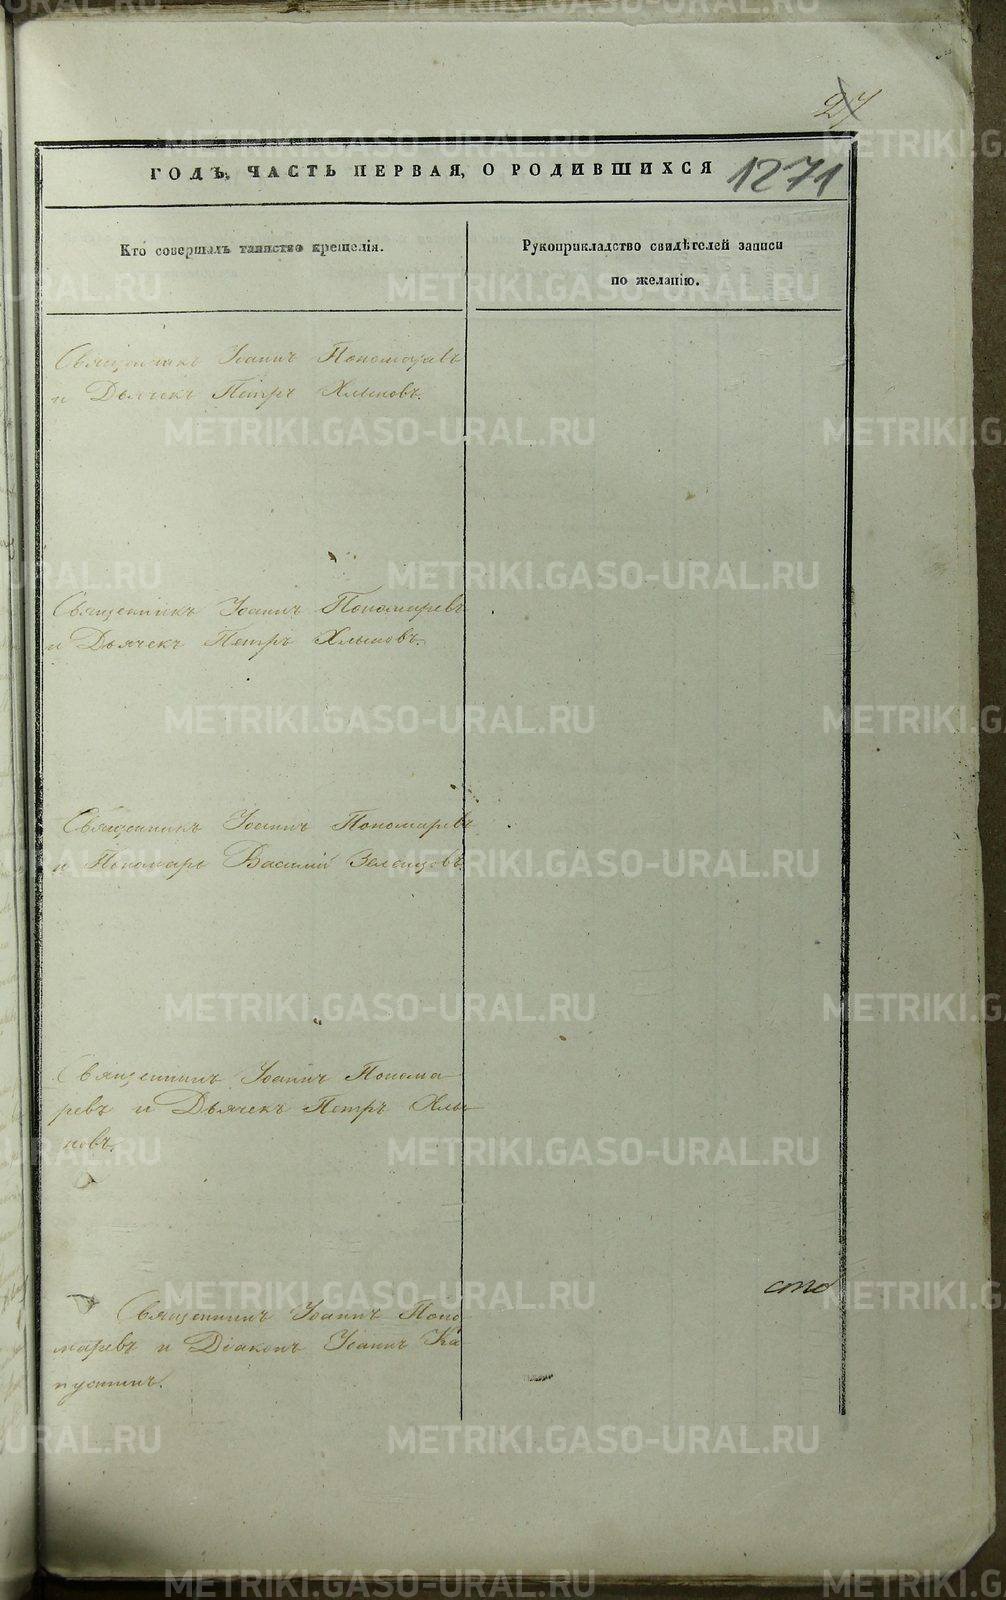 27
ГОДЪ, ЧАСТЬ ПЕРВАЯ, О РОДИВШИХСЯ
1271
Кто совершалъ таинство крещенія.
Рукоприкладство свидѣтелей записи
по желанію.
Священникъ Іоаннъ Пономаревъ
и Дьячекъ Петръ Хлыновъ.
Священникъ Іоаннъ Пономаревъ
и Дьячекъ Петръ Хлыновъ.
Священникъ Іоаннъ Пономаревъ
и Пономарь Василій Зеленцовъ
Священникъ Іоаннъ Понома
ревъ и Дьячекъ Петръ Хлы
новъ.
сто
Священникъ Іоаннъ Поно
маревъ и Діаконъ Іоаннъ Ка
пустинъ.
METRIKI.GASO-URAL.RU